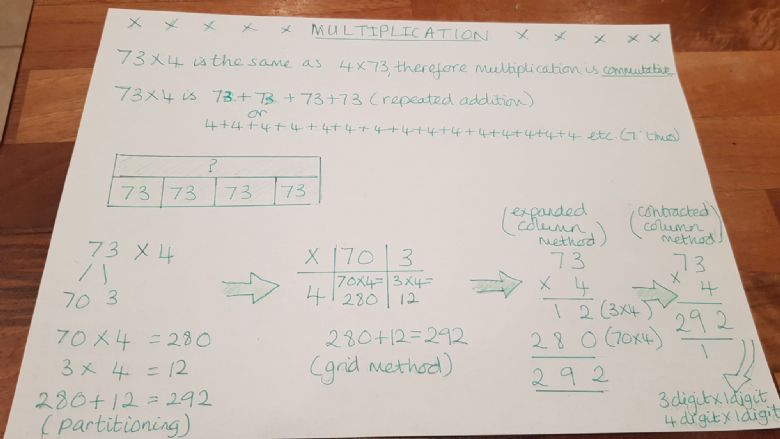 x x x x x MULTIPLICATION x x x x x
73 x 4 is the same as 4 x 73, therefore multiplication is commutative
73 x 4 is 73 + 73 + 73 + 73 (repeated addition)
or
4+4+4+4+4+4+4+4+4+4+4+4+4+4+4+4 etc. times)
?
73 73 73 73
73 x 4
70 3
70 x 4 = 280
3 x 4 = 12
280 + 12 = 292
(partitioning)
x 70 3
4 70x4= 3x4=
280 12
280 + 12 = 292
(grid method)
(expanded
column
method)
73
x 4
1 2 (3x4)
2 8 0 (70x4)
2 9 2
(contracted
column
method)
73
x 4
292
1
3 digit x 1 digit
4 digit x 1 digit